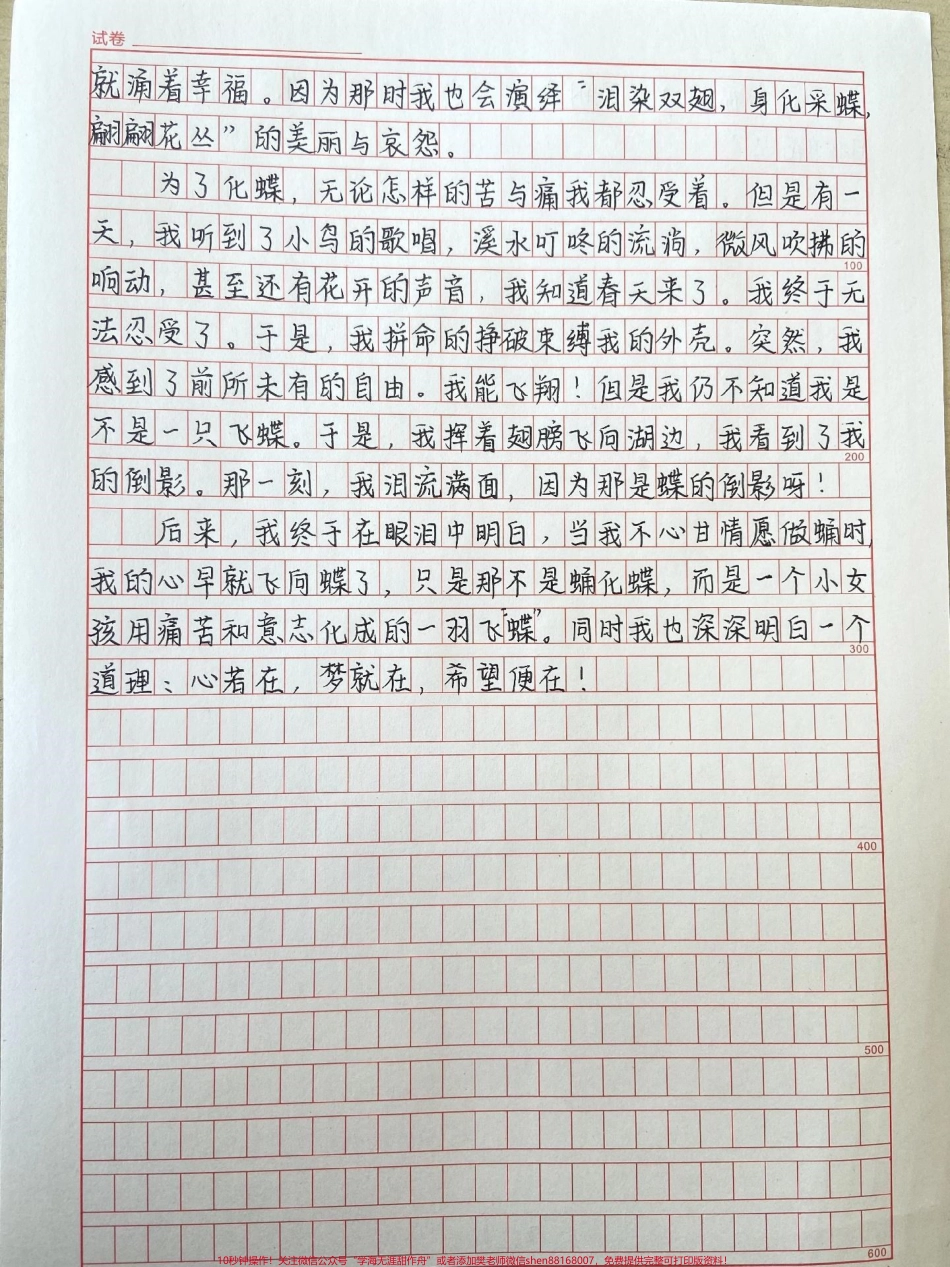 试卷
就涌着幸福。因为那时我也会演绎“泪染双翅，身化采蝶，
翩翩花丛”的美丽与哀怨。
为了化蝶，无论怎样的苦与痛我都忍受着。但是有一
天，我听到了小鸟的歌唱，溪水叮咚的流淌，微风吹拂的
100
响动，甚至还有花开的声音，我知道春天来了。我终于无
法忍受了。于是，我拼命的挣破束缚我的外壳。突然，我
感到了前所未有的自由。我能飞翔！但是我仍不知道我是
不是一只飞蝶。于是，我挥着翅膀飞向湖边，我看到了我
200
的倒影。那一刻，我泪流满面，因为那是蝶的倒影呀！
后来，我终于在眼泪中明白，当我不心甘情愿做蛹时，
我的心早就飞向蝶了，只是那不是蛹化蝶，而是一个小女
孩用痛苦和意志化成的一羽飞“蝶”。同时我也深深明白一个
300
道理：心若在，梦就在，希望便在！
400
500
600
10秒钟操作！关注微信公众号“学海无涯甜作舟”或者添加樊老师微信shen88168007，免费提供完整可打印版资料！